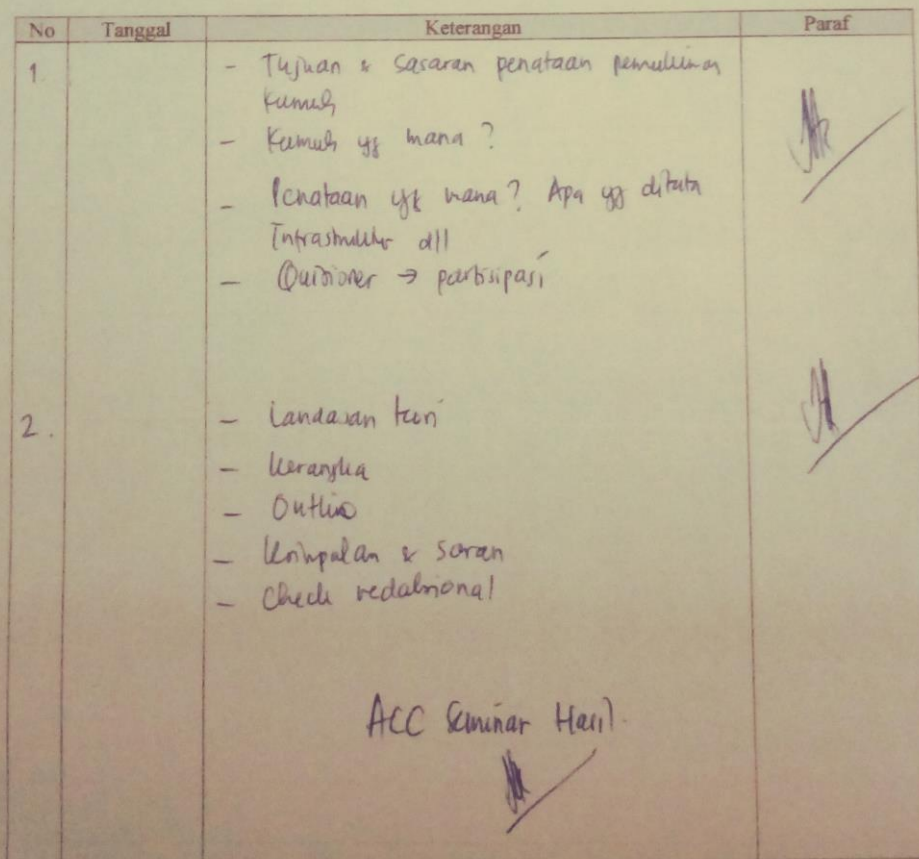 No Tanggal Keterangan Paraf
1. - Tujuan & Sasaran penataan pemukiman
kumuh
- Kumuh yg mana?
- Penataan yg mana? Apa yg ditata
Infrastruktur dll
- Quisioner → partisipasi
2. - Landasan teori
- Kerangka
- Outline
- Kesimpulan & saran
- Check redaksional
ACC Seminar Hasil.